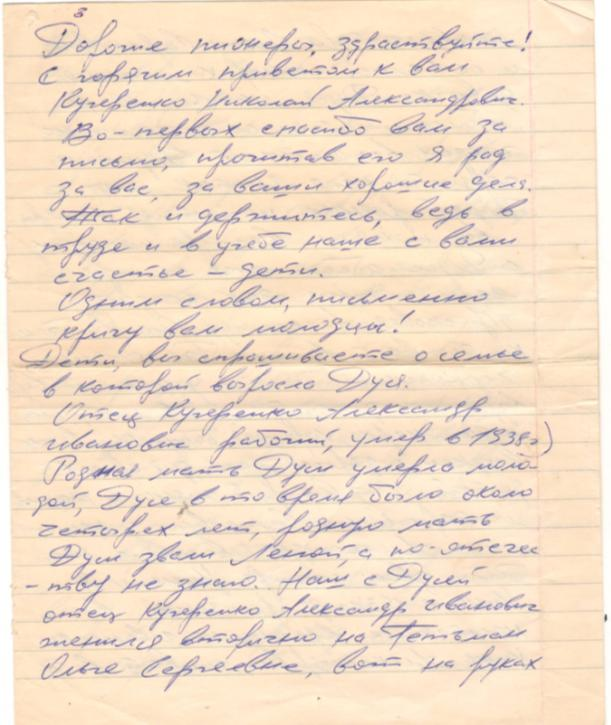 3
Дорогие пионеры, здраствуйте!
С горячим приветом к вам
Кучеренко Николай Александрович.
Во-первых спасибо вам за
письмо, прочитав его я рад
за вас, за ваши хорошие дела.
Так и держитесь, ведь в
труде и в учебе наше с вами
счастье – дети.
Одним словом, письменно
кричу вам молодцы!
Дети, вы спрашиваете о семье
в которой выросла Дуся.
Отец Кучеренко Александр
Иванович рабочий, умер в 1938г)
Родная мать Дуси умерла моло-
дой, Дусе в то время было около
четырех лет, родную мать
Дуси звали Леной, а по-отчес
-тву не знаю. Наш с Дусей
отец Кучеренко Александр Иванович
женился вторично на Гетьман
Ольге Сергеевне, вот на руках